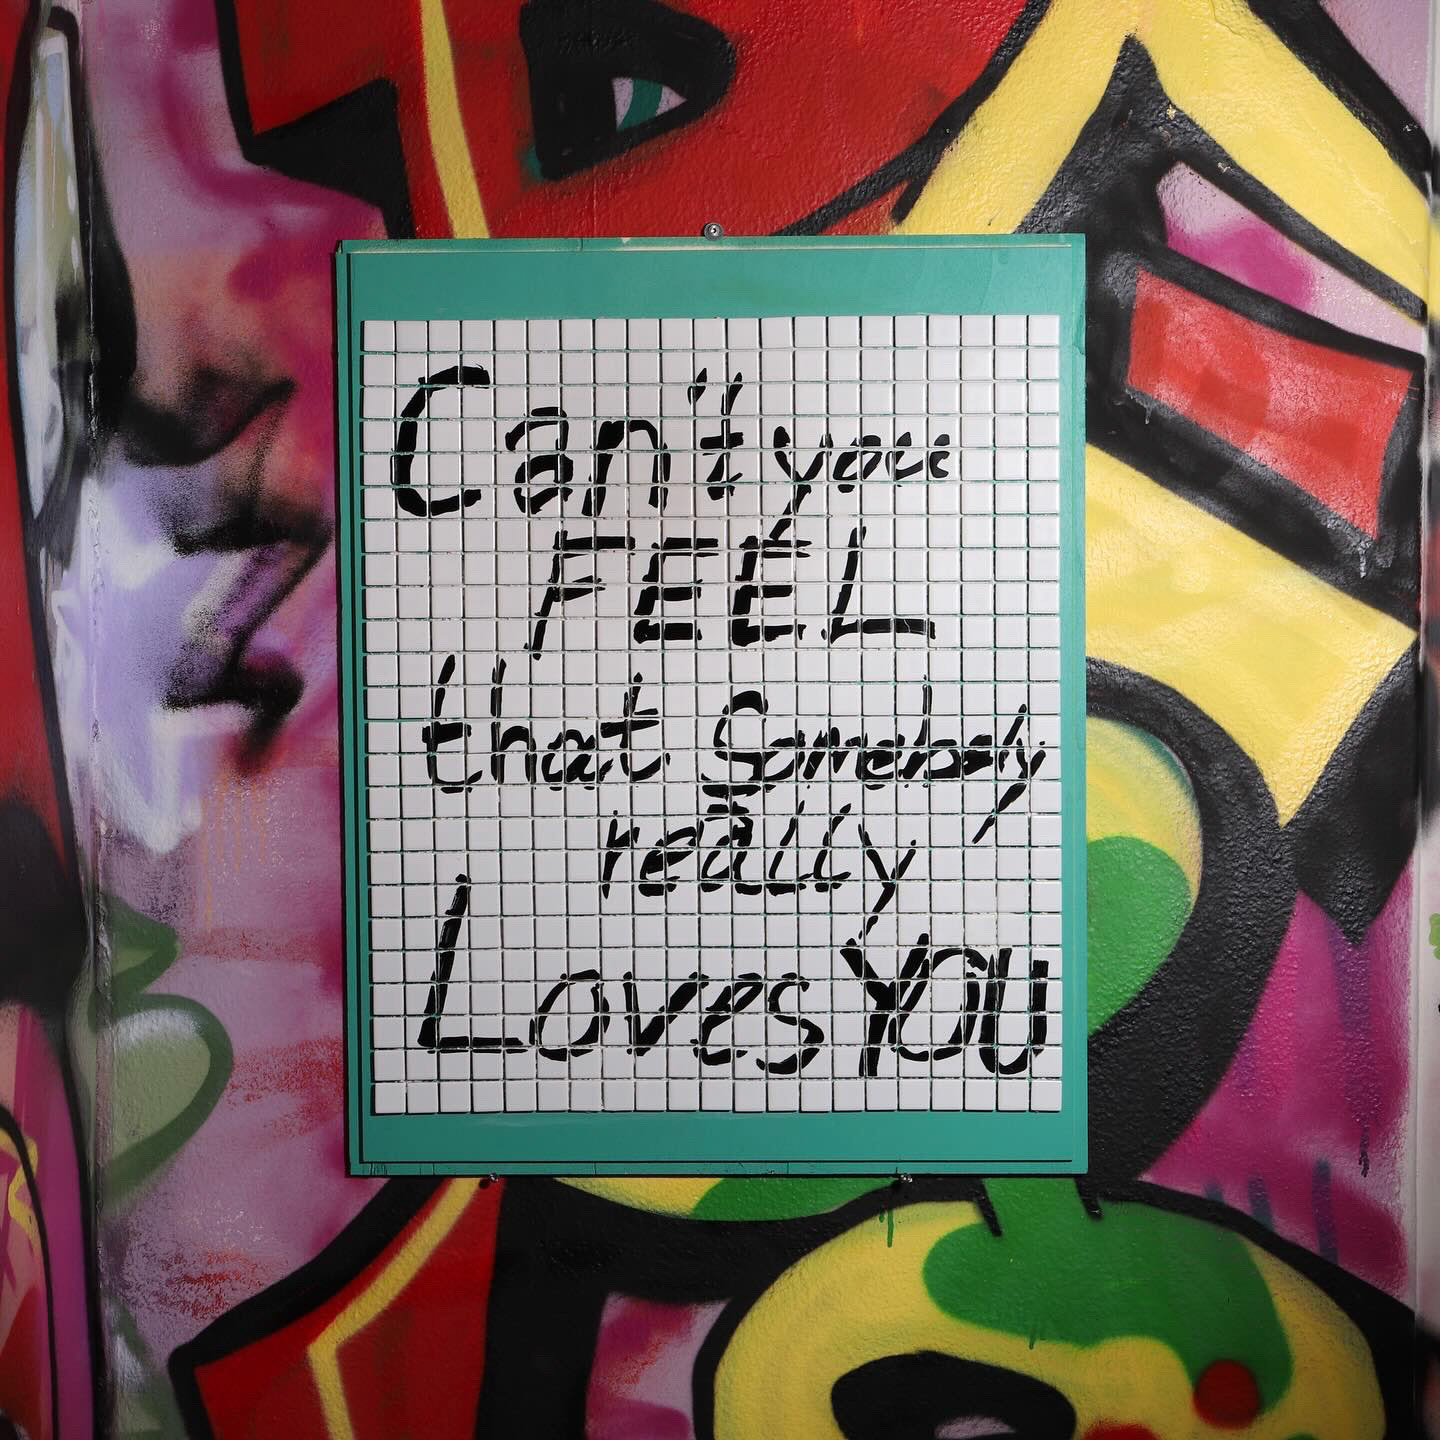 Can't you
FEEL
that Somebody
really
Loves YOU